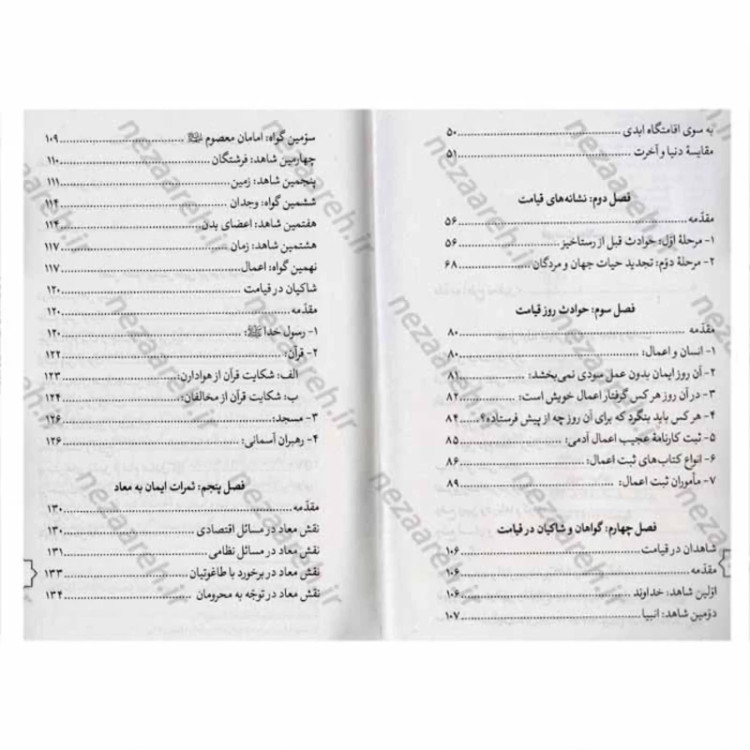 به سوی اقامتگاه ابدی ........ ۵۰
مقایسهٔ دنیا و آخرت ........ ۵۱
فصل دوم: نشانه‌های قیامت
مقدّمه ........ ۵۶
۱- مرحلهٔ اوّل: حوادث قبل از رستاخیز ........ ۵۶
۲- مرحلهٔ دوّم: تجدید حیات جهان و مردگان ........ ۶۸
فصل سوم: حوادث روز قیامت
مقدّمه ........ ۸۰
۱- انسان و اعمال: ........ ۸۰
۲- آن روز ایمان بدون عمل سودی نمی‌بخشد: ........ ۸۱
۳- در آن روز هر کس گرفتار اعمال خویش است: ........ ۸۲
۴- هر کس باید بنگرد که برای آن روز چه از پیش فرستاده؟ ........ ۸۴
۵- ثبت کارنامهٔ عجیب اعمال آدمی: ........ ۸۵
۶- انواع کتاب‌های ثبت اعمال: ........ ۸۶
۷- مأموران ثبت اعمال: ........ ۸۹
فصل چهارم: گواهان و شاکیان در قیامت
شاهدان در قیامت ........ ۱۰۶
مقدّمه ........ ۱۰۶
اوّلین شاهد: خداوند ........ ۱۰۶
دوّمین شاهد: انبیا ........ ۱۰۷
سوّمین گواه: امامان معصوم ........ ۱۰۹
چهارمین شاهد: فرشتگان ........ ۱۱۰
پنجمین شاهد: زمین ........ ۱۱۱
ششمین گواه: وجدان ........ ۱۱۴
هفتمین شاهد: اعضای بدن ........ ۱۱۴
هشتمین شاهد: زمان ........ ۱۱۷
نهمین گواه: اعمال ........ ۱۱۷
شاکیان در قیامت ........ ۱۲۰
مقدّمه ........ ۱۲۰
۱- رسول خدا ﷺ: ........ ۱۲۰
۲- قرآن: ........ ۱۲۲
الف: شکایت قرآن از هوادارن: ........ ۱۲۳
ب: شکایت قرآن از مخالفان: ........ ۱۲۴
۳- مسجد: ........ ۱۲۶
۴- رهبران آسمانی: ........ ۱۲۶
فصل پنجم: ثمرات ایمان به معاد
مقدّمه ........ ۱۳۰
نقش معاد در مسائل اقتصادی ........ ۱۳۰
نقش معاد در مسائل نظامی ........ ۱۳۱
نقش معاد در برخورد با طاغوتیان ........ ۱۳۳
نقش معاد در توجّه به محرومان ........ ۱۳۴
nezaareh.ir